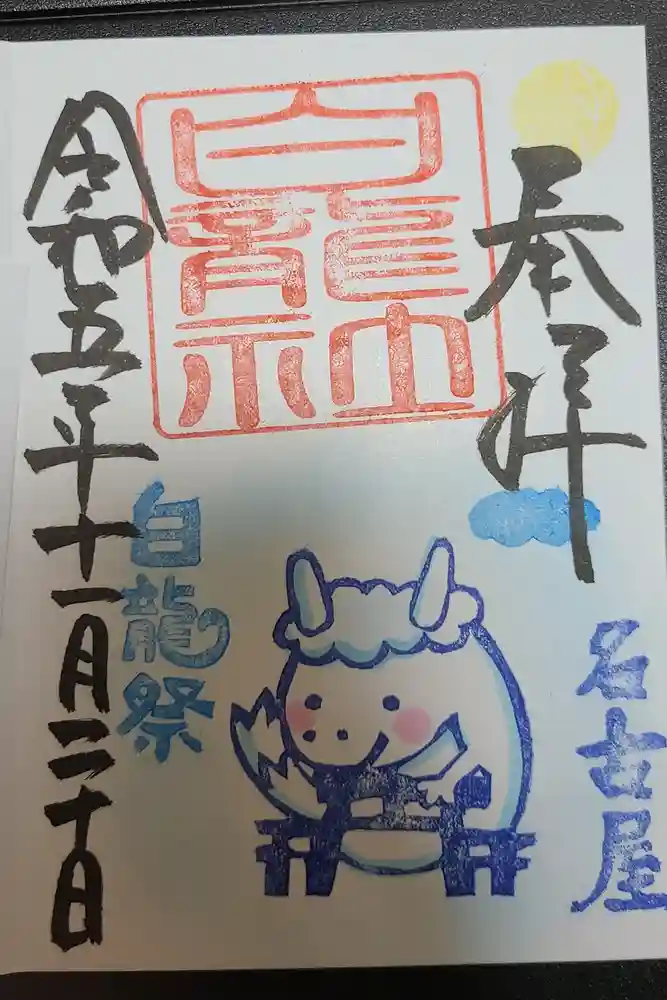 奉拝
名古屋
白龍社
白龍祭
令和五年十一月二十日